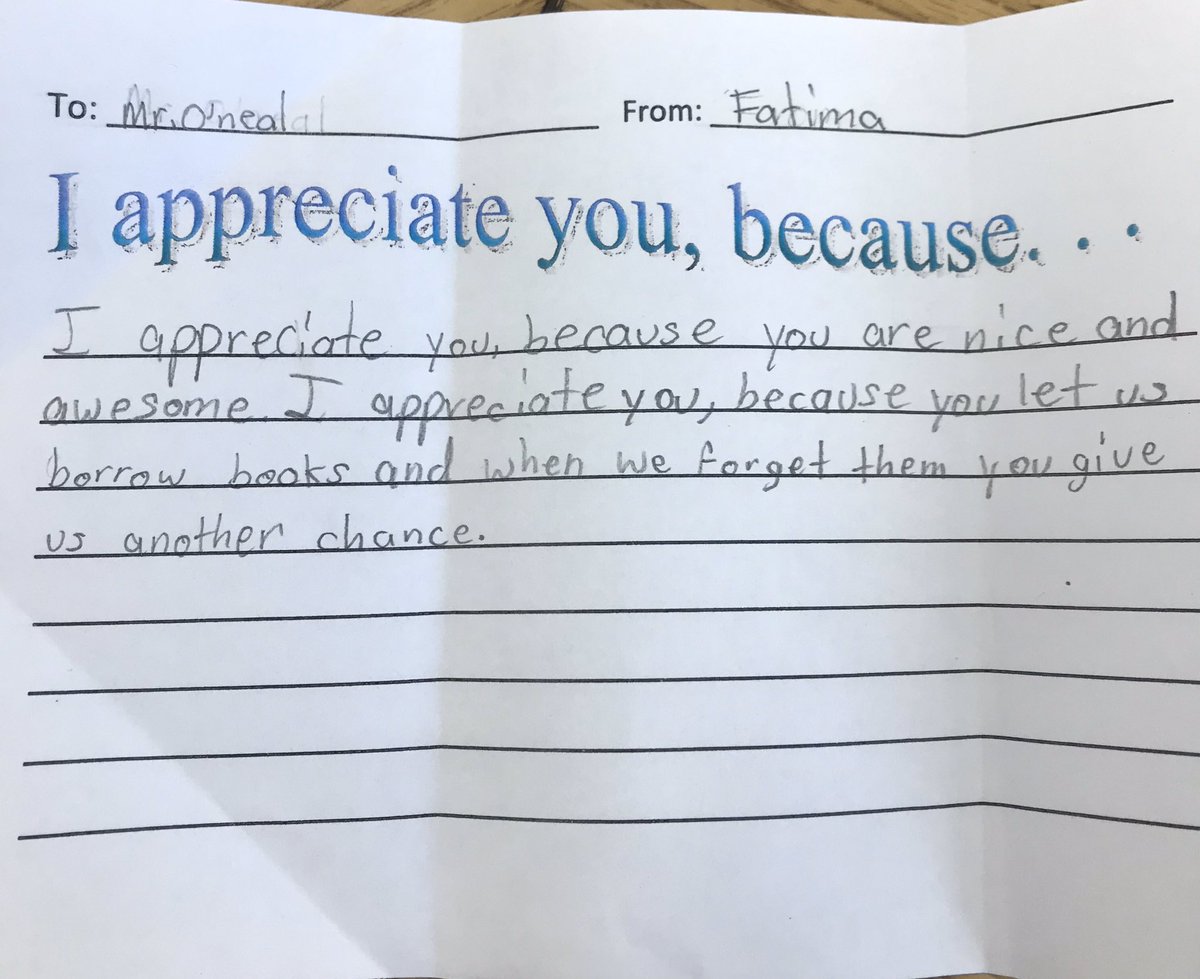 To: Mr. O'neal From: Fatima
I appreciate you, because. . .
I appreciate you, because you are nice and
awesome. I appreciate you, because you let us
borrow books and when we forget them you give
us another chance.